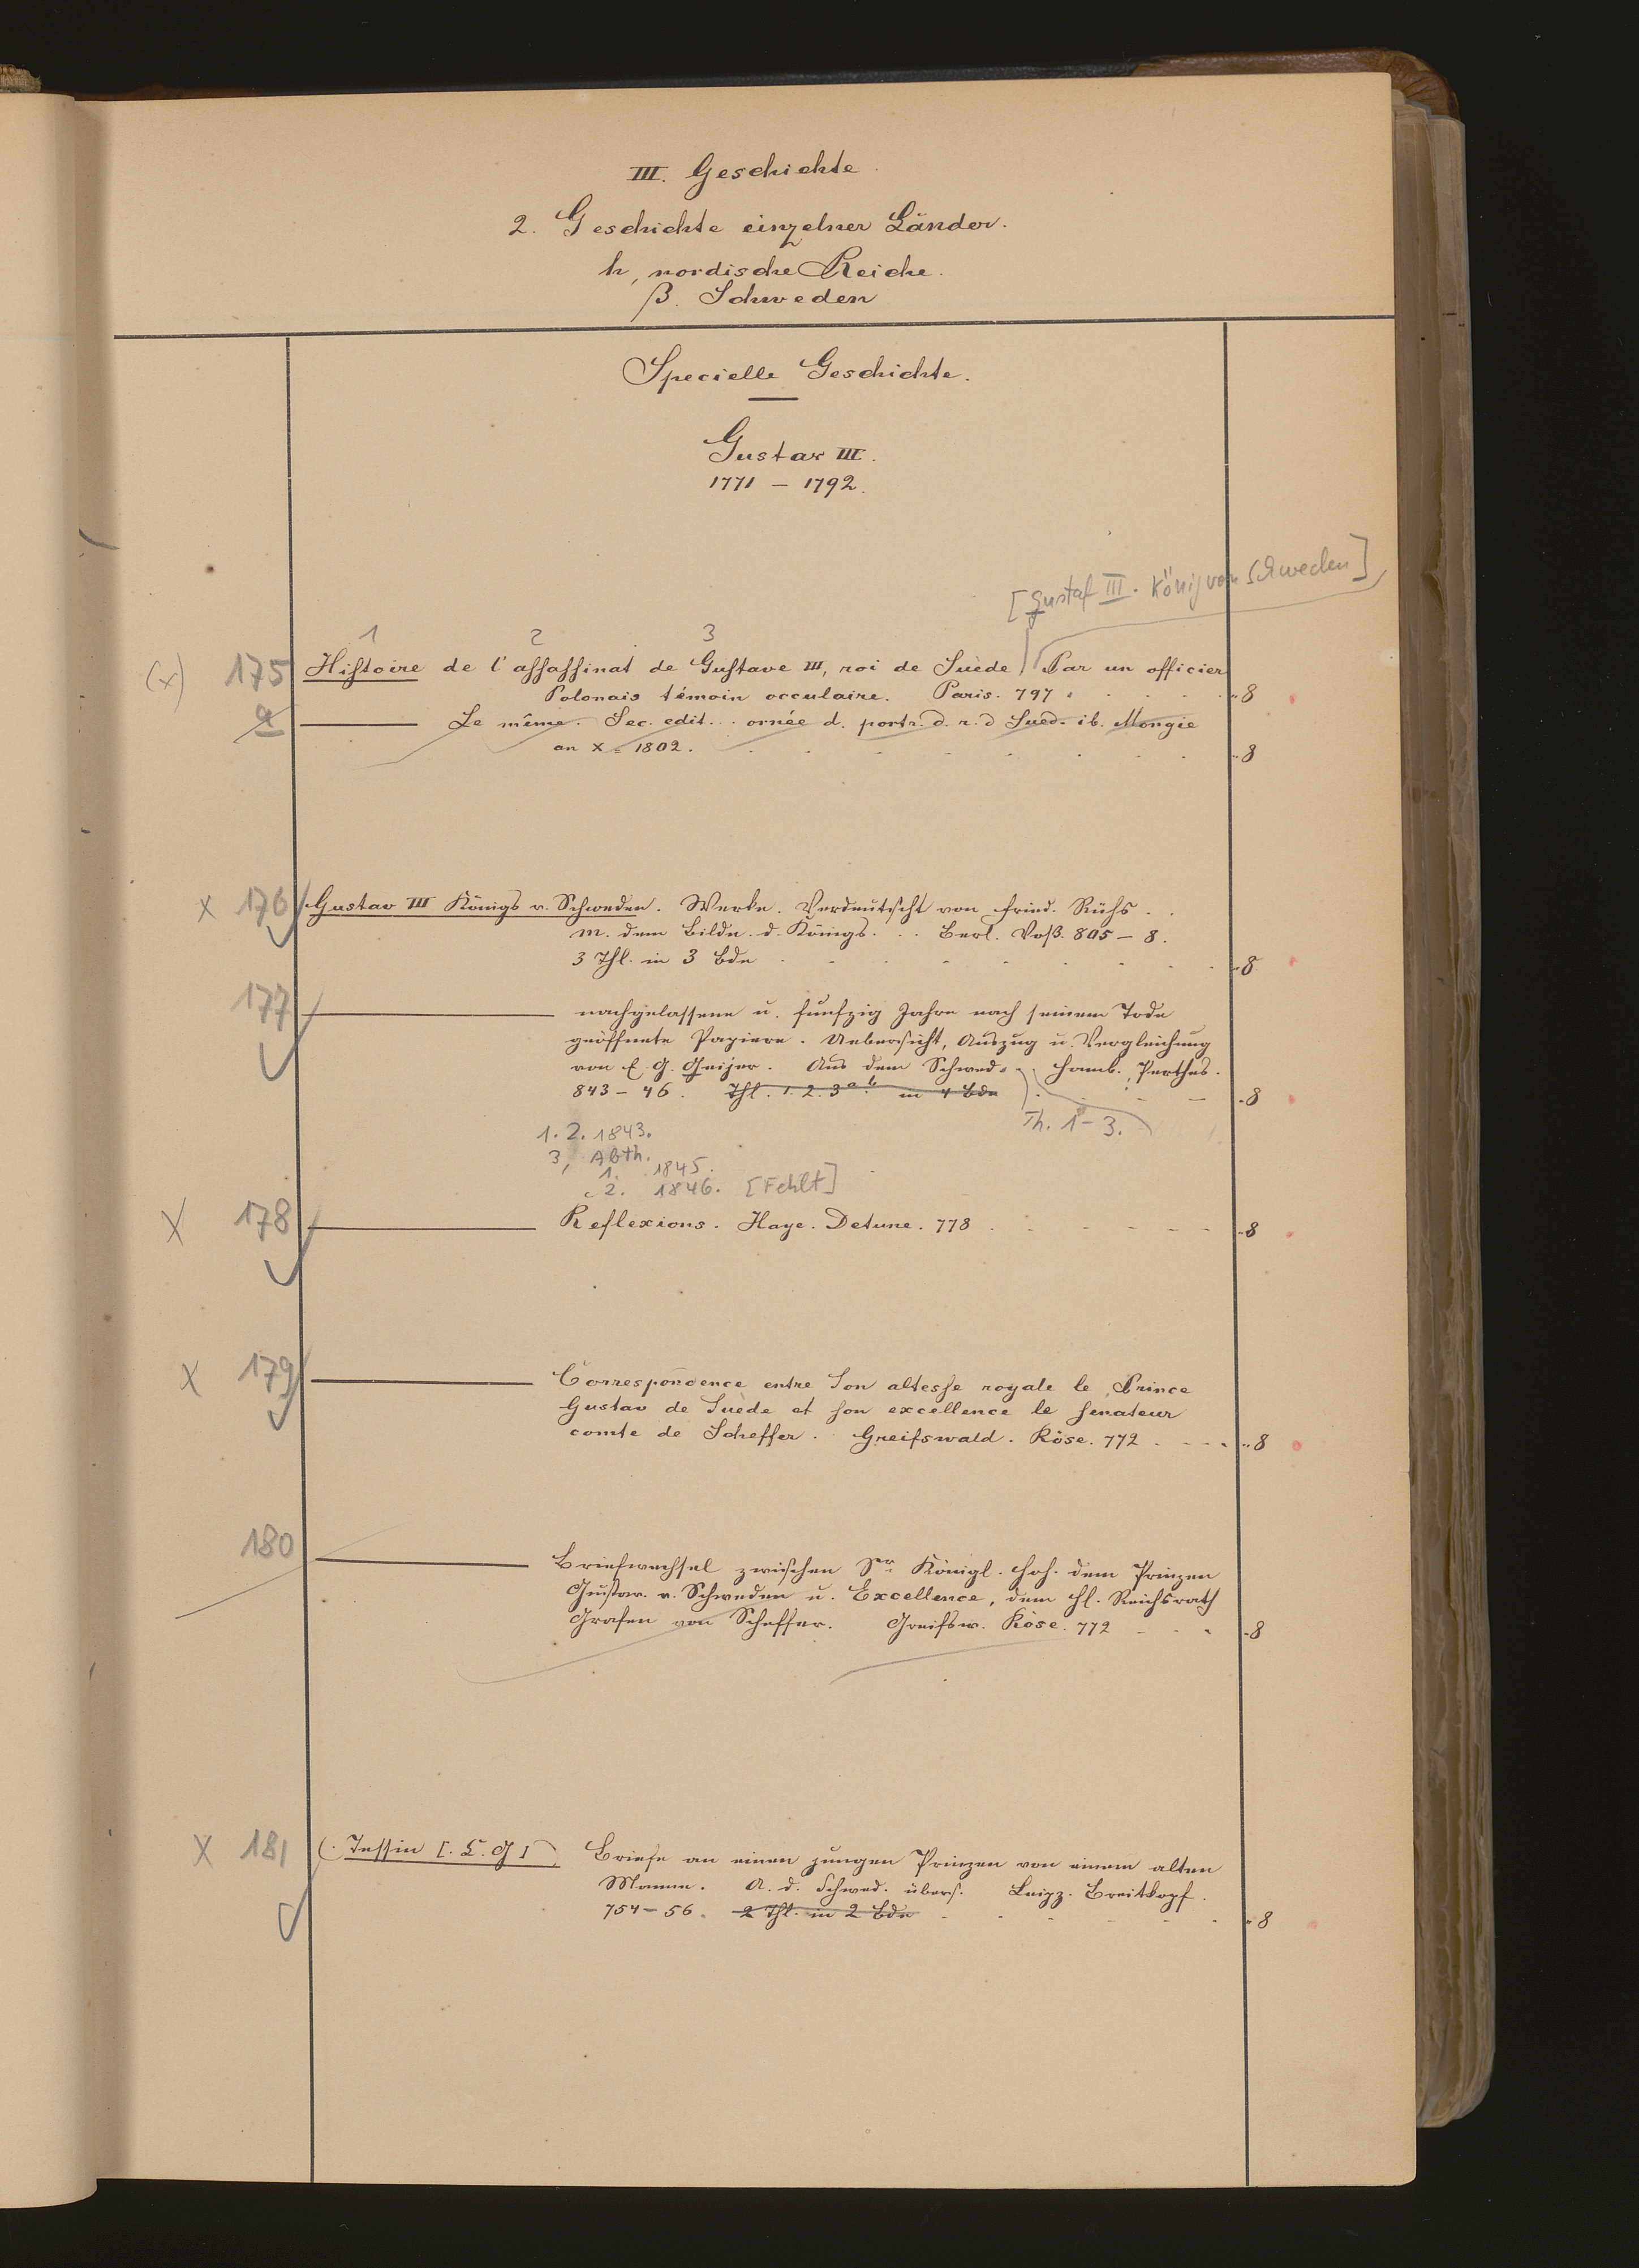 III. Geschichte.
2. Geschichte einzelner Länder.
h, nordische Reiche.
β. Schweden
Specielle Geschichte.
Gustav III.
1771 – 1792.
[Gustaf III. König von Schweden]
1 2 3
(x) 175 Histoire de l'assassinat de Gustave III, roi de Suède Par un officier
Polonais témoin occulaire. Paris. 797. 8
a Le même. Sec. edit... ornée d. portr. d. r. d Sued. ib. Mongie
an X = 1802. 8
x 176 Gustav III Königs v. Schweden. Werke. Verdeutscht von Fried. Rühs.
m. dem Bildn. d. Königs. .. Berl. Voß. 805 – 8.
3 Thl. in 3 Bdn 8
177 nachgelassene u. funfzig Jahre nach seinem Tode
geöffnete Papiere. Uebersicht, Auszug u. Vergleichung
von E. G. Geijer. Aus dem Schwed. Hamb. Perthes.
843 – 46. Thl. 1. 2. 3 a. b. in 4 Bdn 8
Th. 1–3.
1. 2. 1843.
3, Abth.
1. 1845.
2. 1846. [Fehlt]
X 178 Reflexions. Haye. Detune. 778 8
X 179 Correspondence entre Son altesse royale le Prince
Gustav de Suède et son excellence le senateur
comte de Scheffer. Greifswald. Röse. 772 8
180 Briefwechsel zwischen Sr. Königl. Hoh. dem Prinzen
Gustav. v. Schweden u. Excellence, dem H. Reichsrath
Grafen von Scheffer. Greifsw. Röse. 772 8
X 181 (. Tessin [. C. G] Briefe an einen jungen Prinzen von einem alten
Manne. A. d. Schwed. übers. Leipz. Breitkopf.
754 – 56. 2 Thl. in 2 Bdn 8